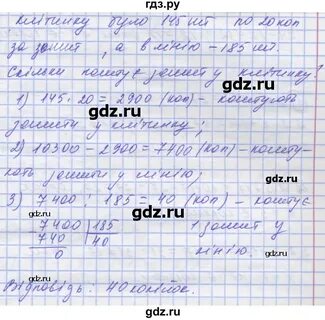 клітинку було 145 шт по 20 коп
за зошит, а в лінію - 185 шт.
Скільки коштує зошит у клітинку?
1) 145 · 20 = 2900 (коп) - коштують
зошити у клітинку;
2) 10300 - 2900 = 7400 (коп) - кошту-
ють зошити у лінію;
3) 7400 : 185 = 40 (коп) - коштує
7400 | 185 1 зошит у
740 | 40 лінію.
0
Відповідь: 40 копійок.
gdz.ru